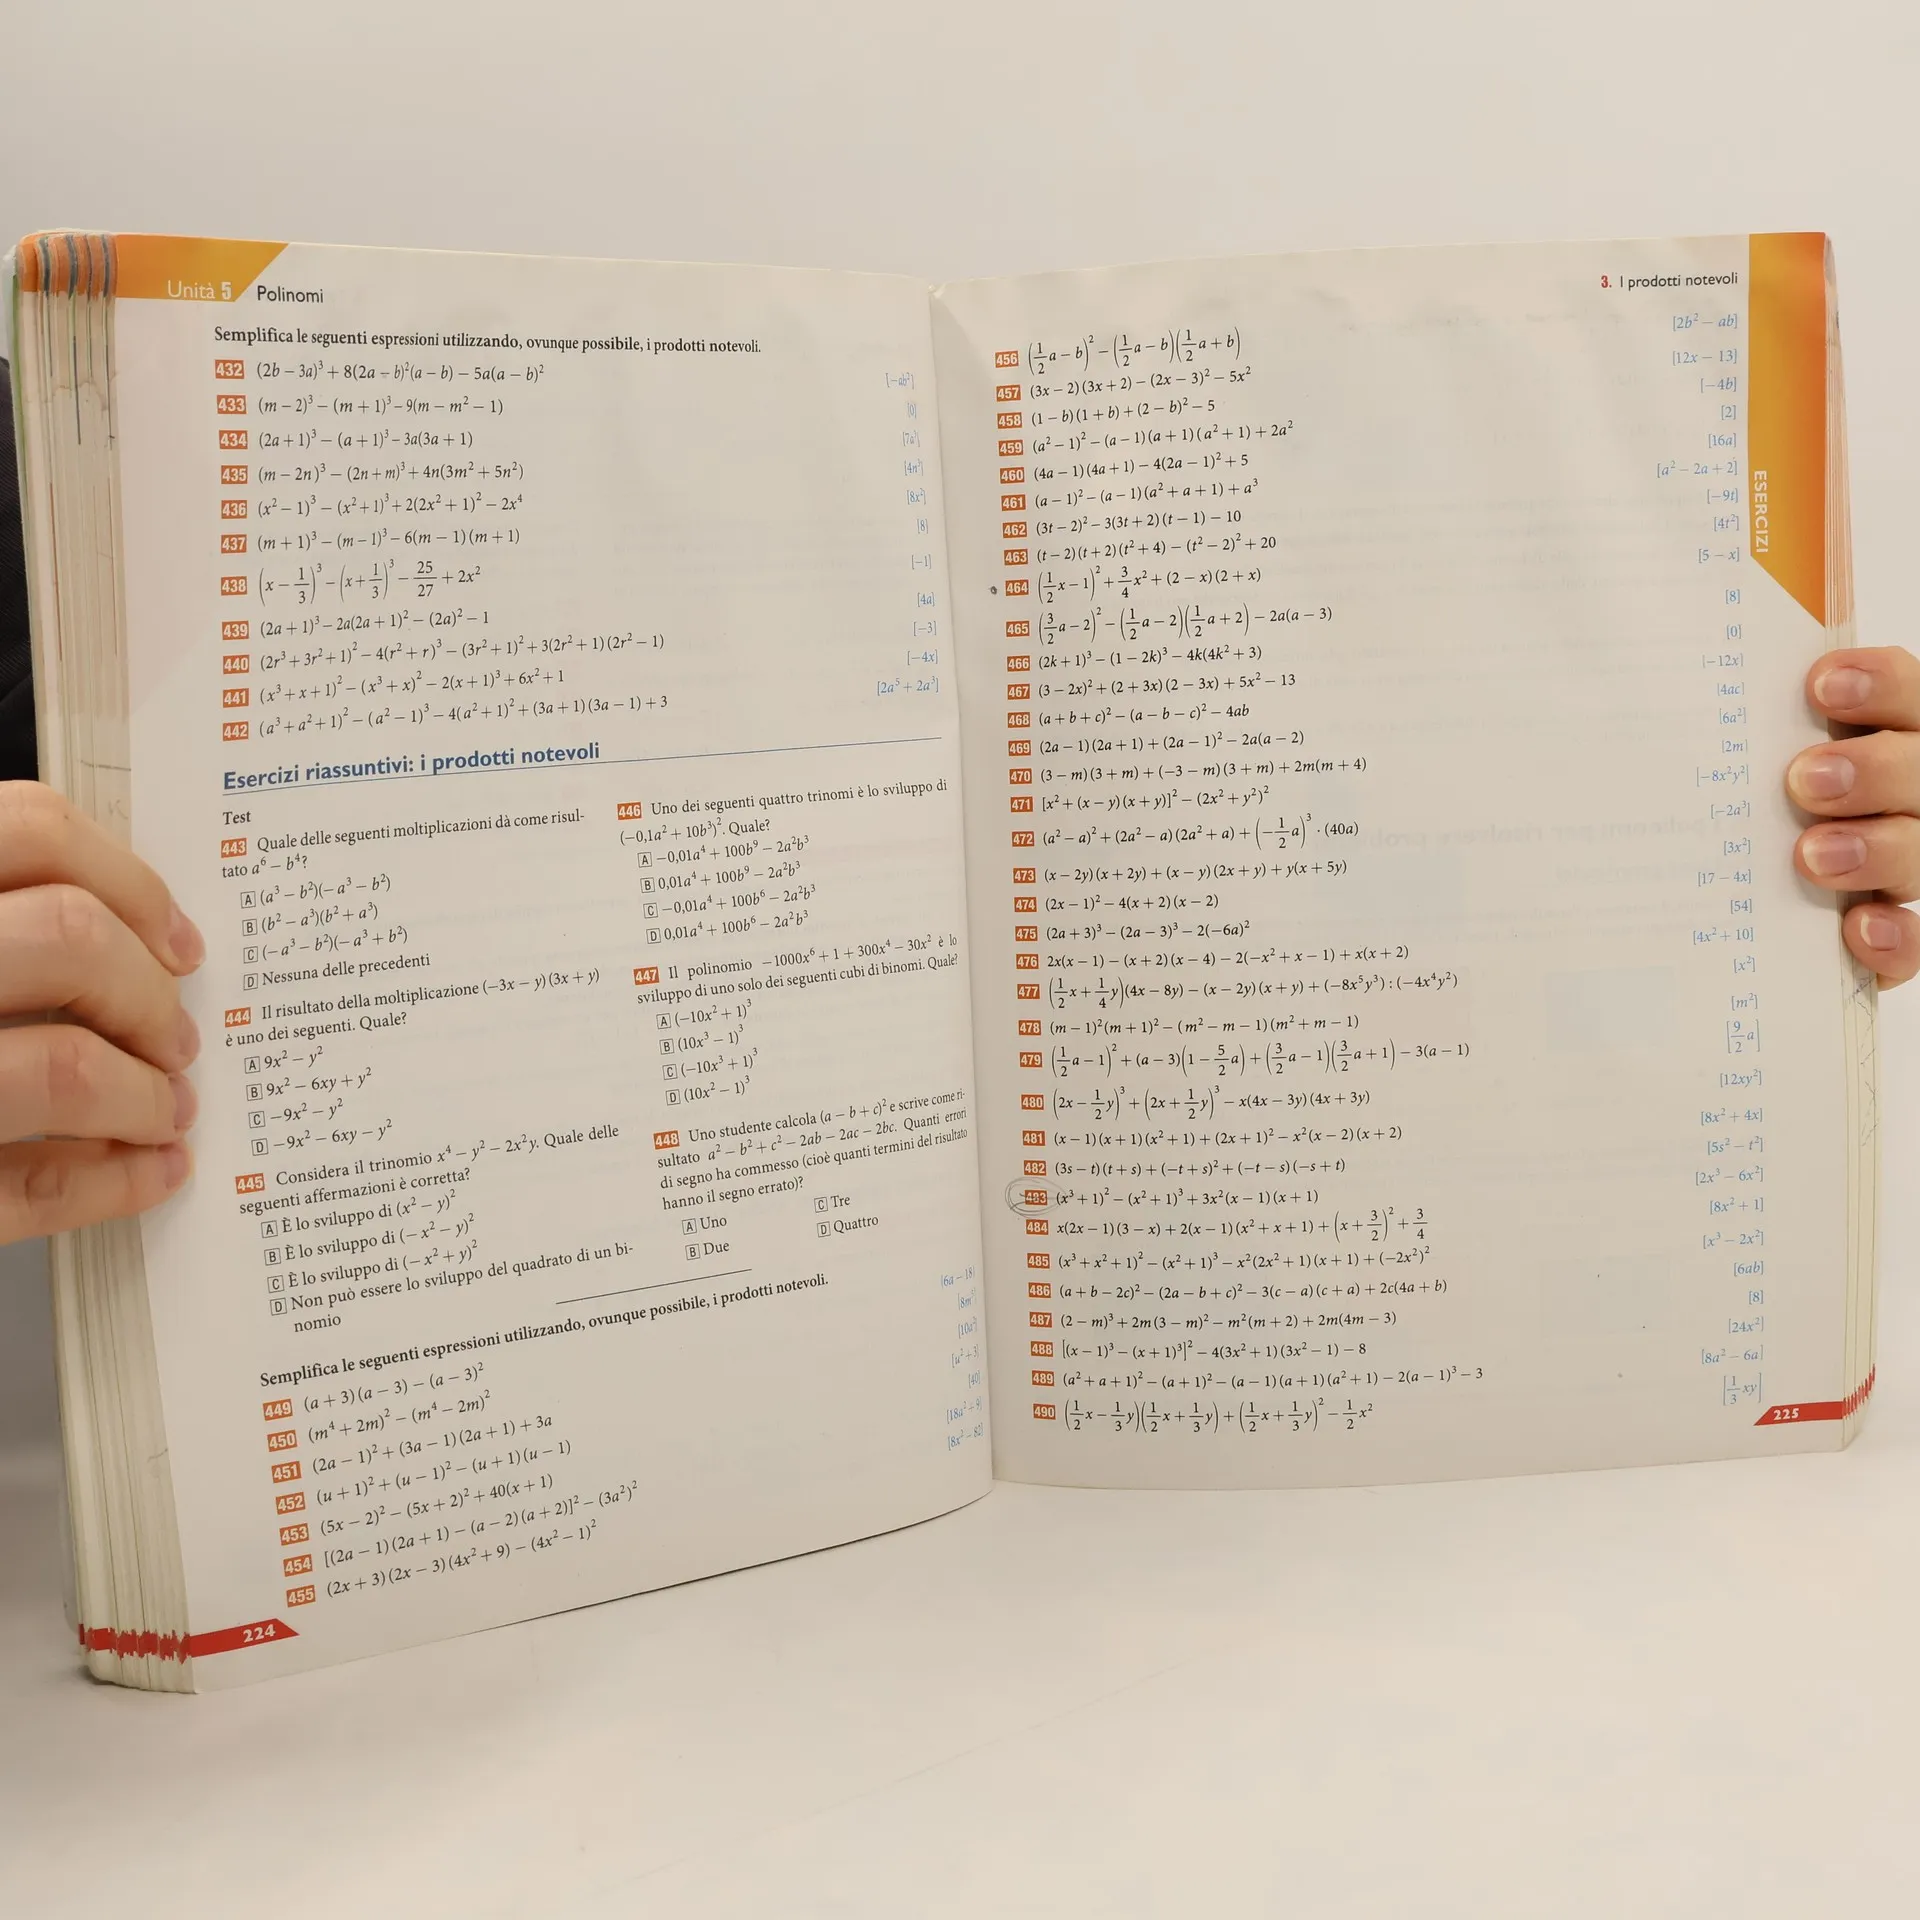 Unità 5 Polinomi
Semplifica le seguenti espressioni utilizzando, ovunque possibile, i prodotti notevoli.
432 (2b − 3a)³ + 8(2a − b)²(a − b) − 5a(a − b)² [−ab²]
433 (m − 2)³ − (m + 1)³ − 9(m − m² − 1) [0]
434 (2a + 1)³ − (a + 1)³ − 3a(3a + 1) [7a³]
435 (m − 2n)³ − (2n + m)³ + 4n(3m² + 5n²) [4n³]
436 (x² − 1)³ − (x² + 1)³ + 2(2x² + 1)² − 2x⁴ [8x²]
437 (m + 1)³ − (m − 1)³ − 6(m − 1)(m + 1) [8]
438 (x − 1/3)³ − (x + 1/3)³ − 25/27 + 2x² [−1]
439 (2a + 1)³ − 2a(2a + 1)² − (2a)² − 1 [4a]
440 (2r³ + 3r² + 1)² − 4(r² + r)³ − (3r² + 1)² + 3(2r² + 1)(2r² − 1) [−3]
441 (x³ + x + 1)² − (x³ + x)² − 2(x + 1)³ + 6x² + 1 [−4x]
442 (a³ + a² + 1)² − (a² − 1)³ − 4(a² + 1)² + (3a + 1)(3a − 1) + 3 [2a⁵ + 2a³]
Esercizi riassuntivi: i prodotti notevoli
Test
443 Quale delle seguenti moltiplicazioni dà come risul-
tato a⁶ − b⁴?
A (a³ − b²)(− a³ − b²)
B (b² − a³)(b² + a³)
C (− a³ − b²)(− a³ + b²)
D Nessuna delle precedenti
444 Il risultato della moltiplicazione (−3x − y)(3x + y)
è uno dei seguenti. Quale?
A 9x² − y²
B 9x² − 6xy + y²
C −9x² − y²
D −9x² − 6xy − y²
445 Considera il trinomio x⁴ − y² − 2x²y. Quale delle
seguenti affermazioni è corretta?
A È lo sviluppo di (x² − y)²
B È lo sviluppo di (− x² − y)²
C È lo sviluppo di (− x² + y)²
D Non può essere lo sviluppo del quadrato di un bi-
nomio
446 Uno dei seguenti quattro trinomi è lo sviluppo di
(−0,1a² + 10b³)². Quale?
A −0,01a⁴ + 100b⁹ − 2a²b³
B 0,01a⁴ + 100b⁹ − 2a²b³
C −0,01a⁴ + 100b⁶ − 2a²b³
D 0,01a⁴ + 100b⁶ − 2a²b³
447 Il polinomio −1000x⁶ + 1 + 300x⁴ − 30x² è lo
sviluppo di uno solo dei seguenti cubi di binomi. Quale?
A (−10x² + 1)³
B (10x³ − 1)³
C (−10x³ + 1)³
D (10x² − 1)³
448 Uno studente calcola (a − b + c)² e scrive come ri-
sultato a² − b² + c² − 2ab − 2ac − 2bc. Quanti errori
di segno ha commesso (cioè quanti termini del risultato
hanno il segno errato)?
A Uno
B Due
C Tre
D Quattro
Semplifica le seguenti espressioni utilizzando, ovunque possibile, i prodotti notevoli.
449 (a + 3)(a − 3) − (a − 3)² [6a − 18]
450 (m⁴ + 2m)² − (m⁴ − 2m)² [8m⁵]
451 (2a − 1)² + (3a − 1)(2a + 1) + 3a [10a²]
452 (u + 1)² + (u − 1)² − (u + 1)(u − 1) [u² + 3]
453 (5x − 2)² − (5x + 2)² + 40(x + 1) [40]
454 [(2a − 1)(2a + 1) − (a − 2)(a + 2)]² − (3a²)² [18a² + 9]
455 (2x + 3)(2x − 3)(4x² + 9) − (4x² − 1)² [8x² − 82]
224
3. I prodotti notevoli
456 (1/2 a − b)² − (1/2 a − b)(1/2 a + b) [2b² − ab]
457 (3x − 2)(3x + 2) − (2x − 3)² − 5x² [12x − 13]
458 (1 − b)(1 + b) + (2 − b)² − 5 [−4b]
459 (a² − 1)² − (a − 1)(a + 1)(a² + 1) + 2a² [2]
460 (4a − 1)(4a + 1) − 4(2a − 1)² + 5 [16a]
461 (a − 1)² − (a − 1)(a² + a + 1) + a³ [a² − 2a + 2]
462 (3t − 2)² − 3(3t + 2)(t − 1) − 10 [−9t]
463 (t − 2)(t + 2)(t² + 4) − (t² − 2)² + 20 [4t²]
464 (1/2 x − 1)² + 3/4 x² + (2 − x)(2 + x) [5 − x]
465 (3/2 a − 2)² − (1/2 a − 2)(1/2 a + 2) − 2a(a − 3) [8]
466 (2k + 1)³ − (1 − 2k)³ − 4k(4k² + 3) [0]
467 (3 − 2x)² + (2 + 3x)(2 − 3x) + 5x² − 13 [−12x]
468 (a + b + c)² − (a − b − c)² − 4ab [4ac]
469 (2a − 1)(2a + 1) + (2a − 1)² − 2a(a − 2) [6a²]
470 (3 − m)(3 + m) + (−3 − m)(3 + m) + 2m(m + 4) [2m]
471 [x² + (x − y)(x + y)]² − (2x² + y²)² [−8x²y²]
472 (a² − a)² + (2a² − a)(2a² + a) + (−1/2 a)³ · (40a) [−2a³]
473 (x − 2y)(x + 2y) + (x − y)(2x + y) + y(x + 5y) [3x²]
474 (2x − 1)² − 4(x + 2)(x − 2) [17 − 4x]
475 (2a + 3)³ − (2a − 3)³ − 2(−6a)² [54]
476 2x(x − 1) − (x + 2)(x − 4) − 2(−x² + x − 1) + x(x + 2) [4x² + 10]
477 (1/2 x + 1/4 y)(4x − 8y) − (x − 2y)(x + y) + (−8x⁵y³) : (−4x⁴y²) [x²]
478 (m − 1)²(m + 1)² − (m² − m − 1)(m² + m − 1) [m²]
479 (1/2 a − 1)² + (a − 3)(1 − 5/2 a) + (3/2 a − 1)(3/2 a + 1) − 3(a − 1) [9/2 a]
480 (2x − 1/2 y)³ + (2x + 1/2 y)³ − x(4x − 3y)(4x + 3y) [12xy²]
481 (x − 1)(x + 1)(x² + 1) + (2x + 1)² − x²(x − 2)(x + 2) [8x² + 4x]
482 (3s − t)(t + s) + (−t + s)² + (−t − s)(−s + t) [5s² − t²]
483 (x³ + 1)² − (x² + 1)³ + 3x²(x − 1)(x + 1) [2x³ − 6x²]
484 x(2x − 1)(3 − x) + 2(x − 1)(x² + x + 1) + (x + 3/2)² + 3/4 [8x² + 1]
485 (x³ + x² + 1)² − (x² + 1)³ − x²(2x² + 1)(x + 1) + (−2x²)² [x³ − 2x²]
486 (a + b − 2c)² − (2a − b + c)² − 3(c − a)(c + a) + 2c(4a + b) [6ab]
487 (2 − m)³ + 2m(3 − m)² − m²(m + 2) + 2m(4m − 3) [8]
488 [(x − 1)³ − (x + 1)³]² − 4(3x² + 1)(3x² − 1) − 8 [24x²]
489 (a² + a + 1)² − (a + 1)² − (a − 1)(a + 1)(a² + 1) − 2(a − 1)³ − 3 [8a² − 6a]
490 (1/2 x − 1/3 y)(1/2 x + 1/3 y) + (1/2 x + 1/3 y)² − 1/2 x² [1/3 xy]
ESERCIZI
225